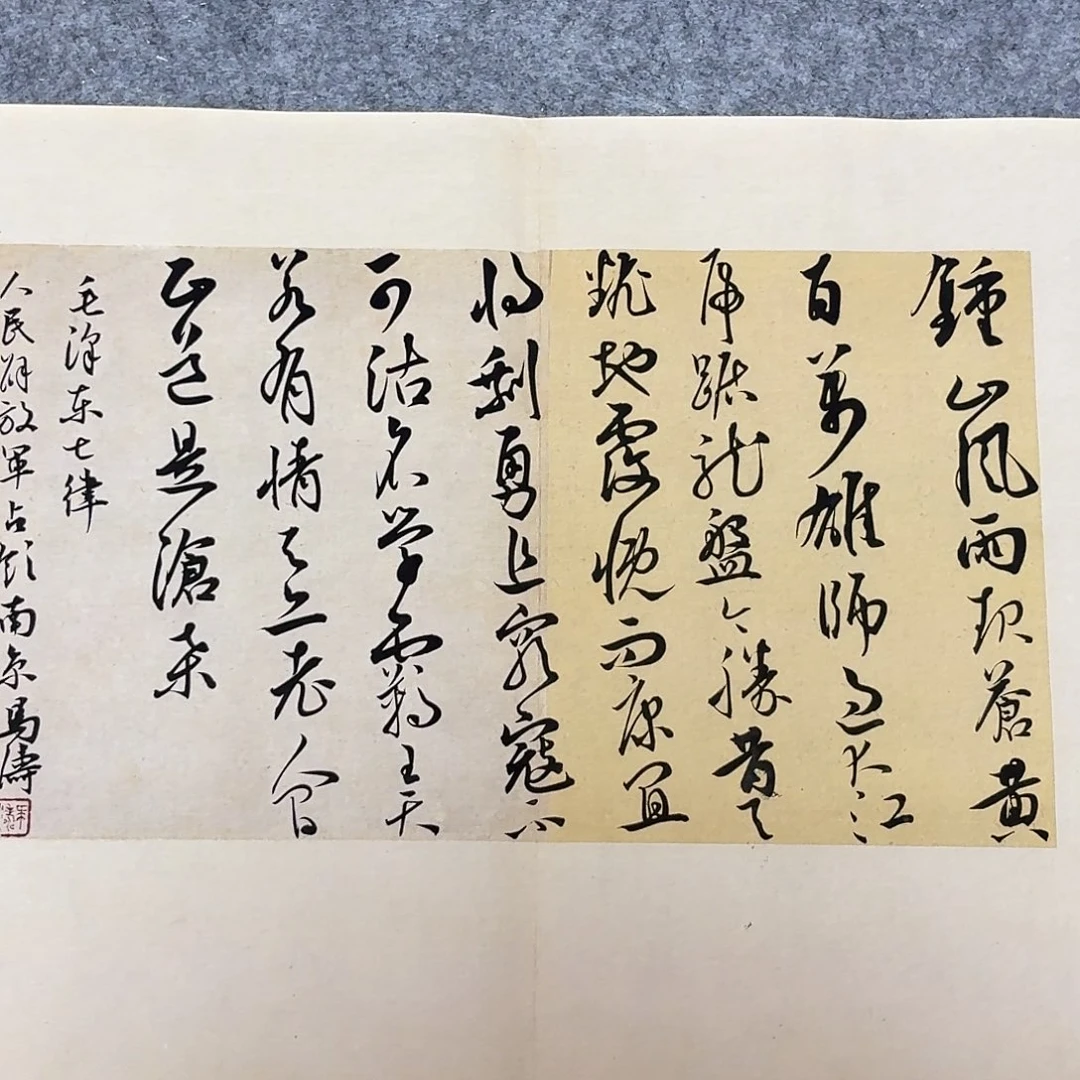 鍾山風雨起蒼黄
百萬雄師過大江
虎踞龍盤今勝昔天
翻地覆慨而慷宜
將剩勇追窮寇不
可沽名學霸王天
若有情天亦老人間
正道是滄桑
毛澤东七律
人民解放軍占領南京馬濤